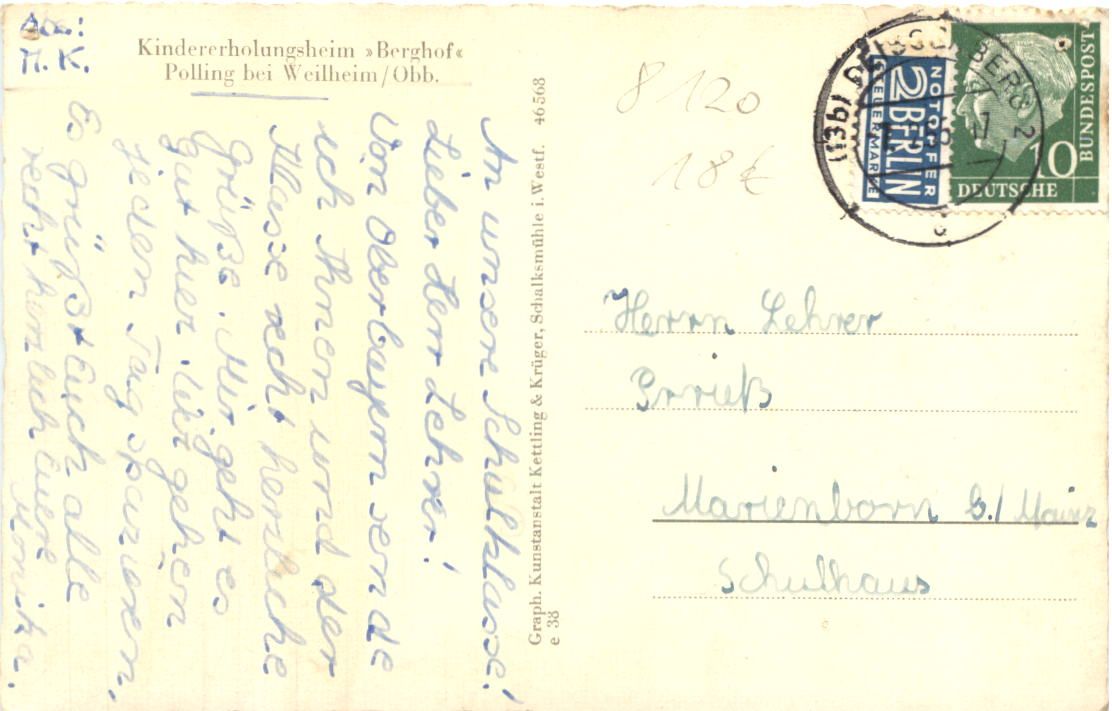 Abs.:
M. K.
Kindererholungsheim »Berghof«
Polling bei Weilheim/Obb.
An unsere Schulklasse!
Lieber Herr Lehrer!
Von Oberbayern sende
ich Ihnen und der
Klasse recht herzliche
Grüße. Mir geht es
gut hier. Wir gehen
jeden Tag spazieren,
Es grüßt Euch alle
recht herzlich Euere
Monika.
Graph. Kunstanstalt Kettling & Krüger, Schalksmühle i. Westf. 46568
e 38
8120
18€
NOTOPFER
2 BERLIN
STEUERMARKE
10
DEUTSCHE
BUNDESPOST
(13b)
Herrn Lehrer
Marienborn b./ Mainz
Schulhaus